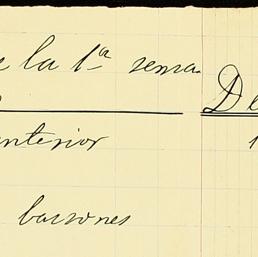 e la 1ª sema.
De
anterior
1
bassones